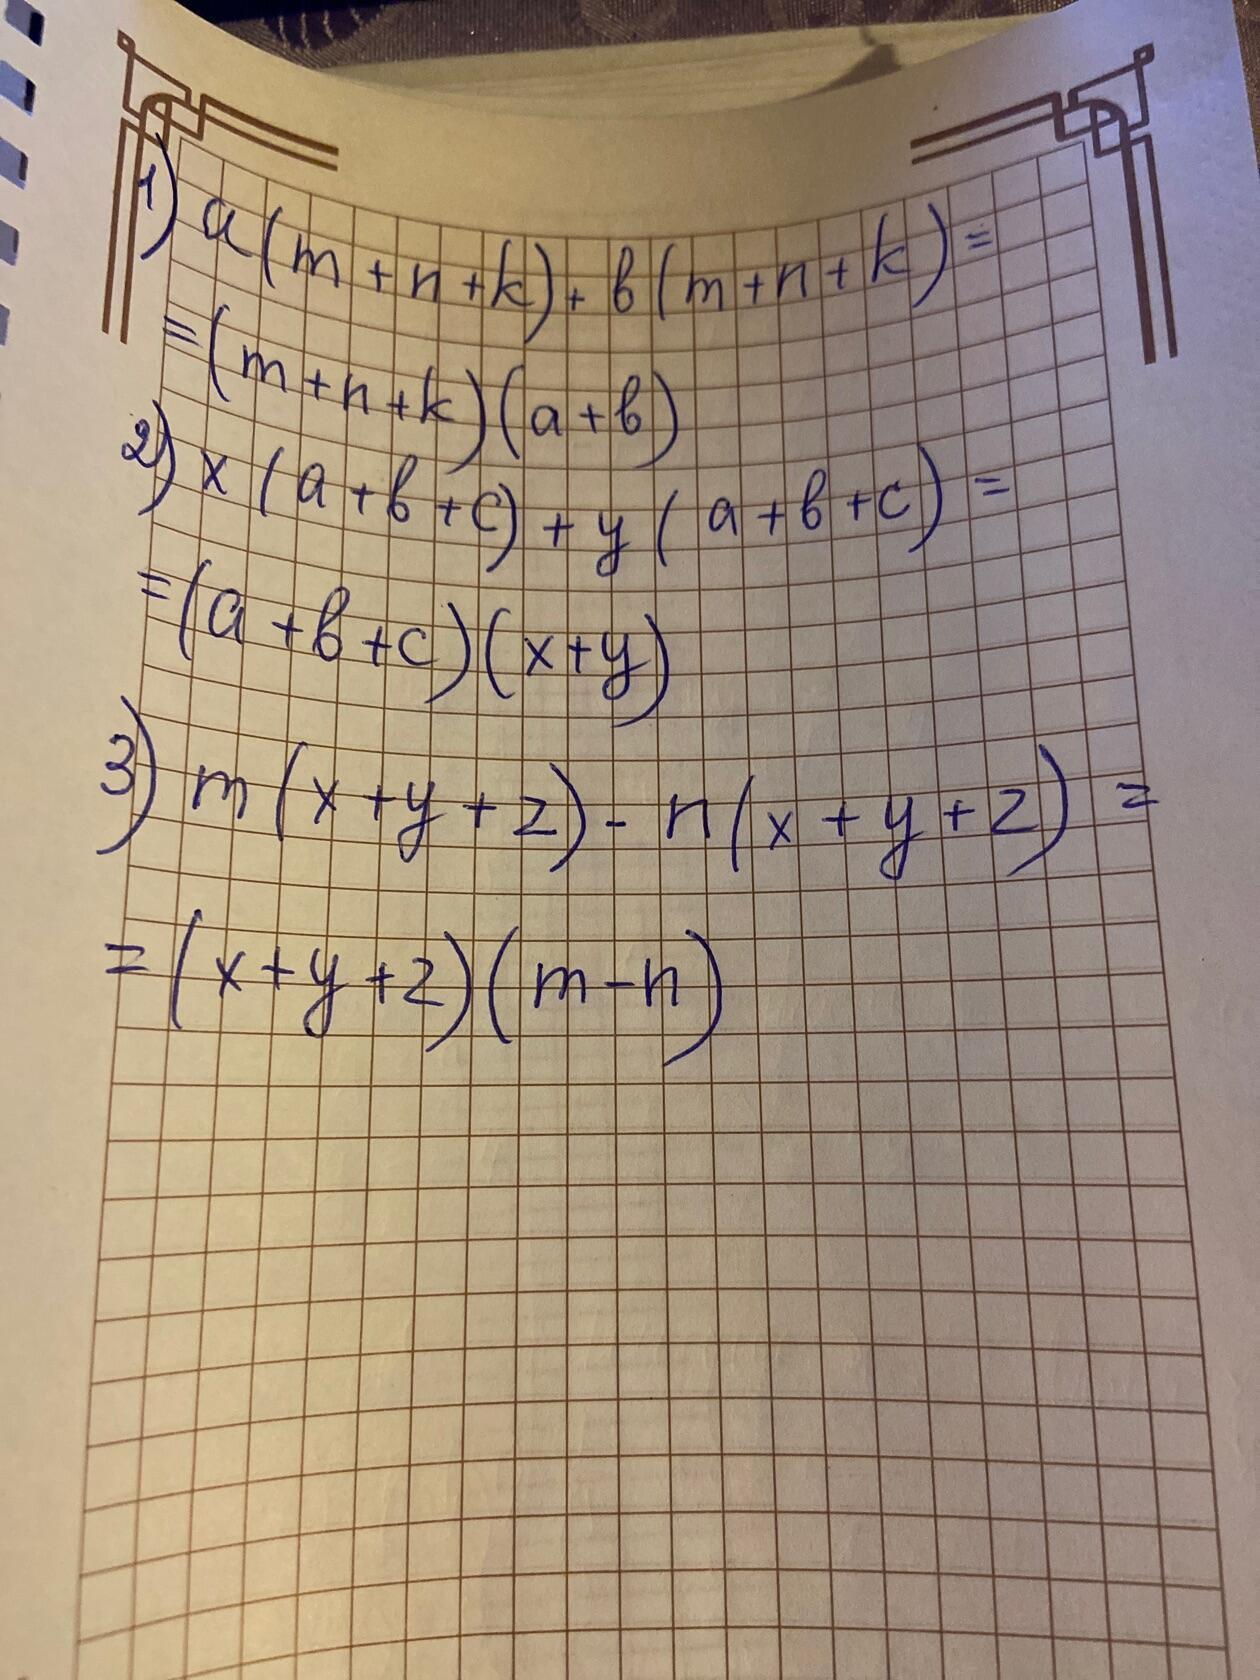 1) a(m+n+k)+b(m+n+k)=
=(m+n+k)(a+b)
2) x(a+b+c)+y(a+b+c)=
=(a+b+c)(x+y)
3) m(x+y+z)-n(x+y+z)=
=(x+y+z)(m-n)